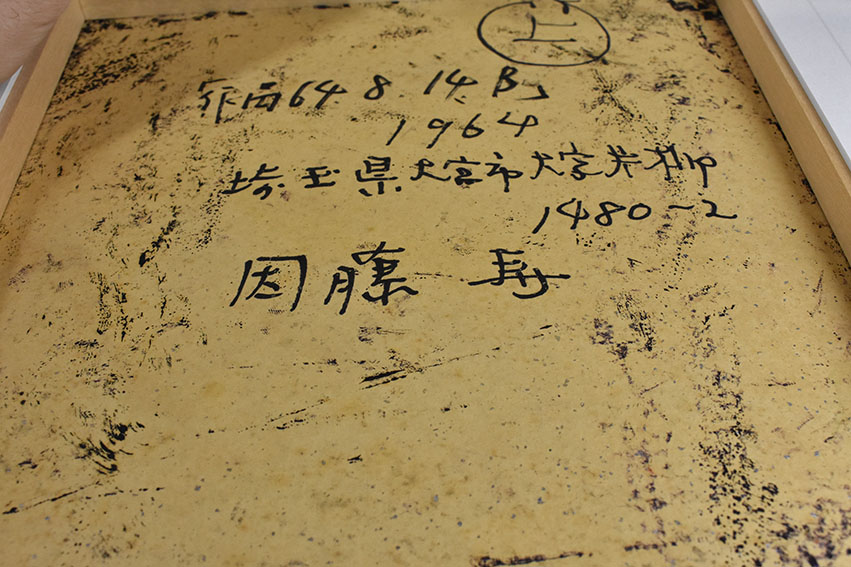 上
作画64.8.14.B
1964
埼玉県大宮市大字片柳
1480-2
因藤壽